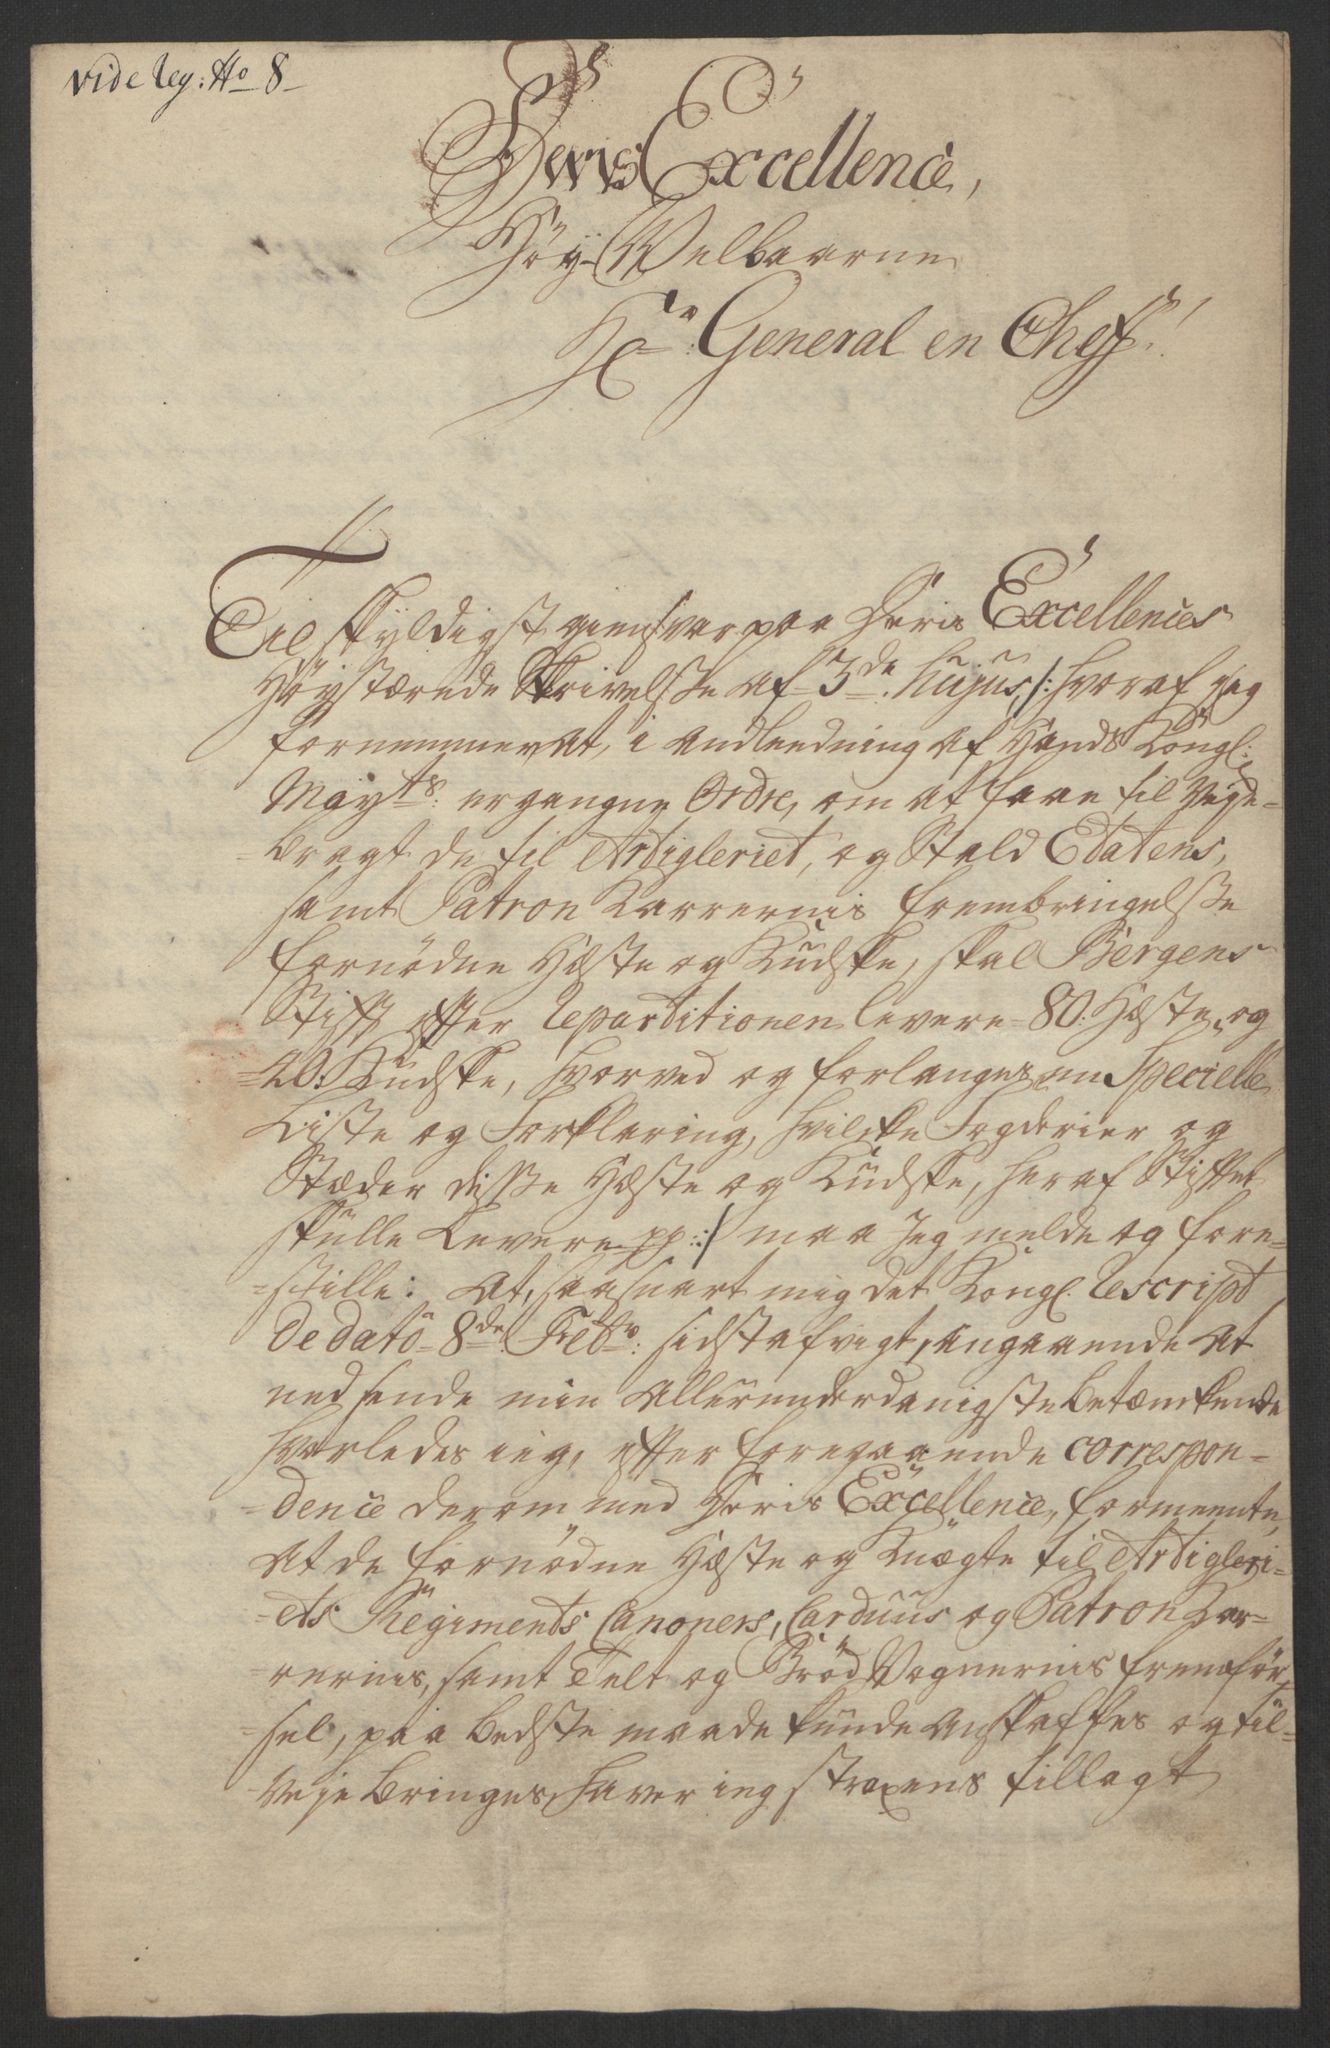 Vide Reg: No 8
Deris Excellence,
Høy-Velbaarne
Hr: General en Chef!
Til skyldigst giensvar paa Deris Excellences
Høystærede Skrivelsse af 3de hujus, /: hvoraf jeg
fornemmer at, i andleedning af Hands Kongl:
Mayts: ergangne Ordre, om at faae til Veye-
-bragt de til Artigleriet, og Stald Etatens,
samt Patron Karrernis frembringelsse
fornødne Hæste og Kudske, skal Bergens
Stift efter Repartitionen levere 80: Hæste, og
40: Kudske, hvorved og forlanges en Specielle
Liste og Forklaring, hvilcke Fogderier og
Stæder disse Hæste og Kudske, heraf Stiftet
skulle Levere pp: :/ maa Jeg melde og fore-
-stille: At, saasnart mig det Kongl. Rescript
de dato 8de Febr: sidst afvigt, angaaende at
nedsende min allerunderdanigste Betænkende
hvorledes ieg, efter foregaaende correspon-
-dence derom med Deris Excellence, formeente,
at de fornødne Hæste og Knægte til Artigleri-
-ets Regiments Canoners, Carduus og Patron Kar-
-rernis, samt Telt og Brød Vognernis fremfør-
-sel, paa bedste maade kunde anskaffes og til-
-veje bringes, haver ieg straxens tillagt